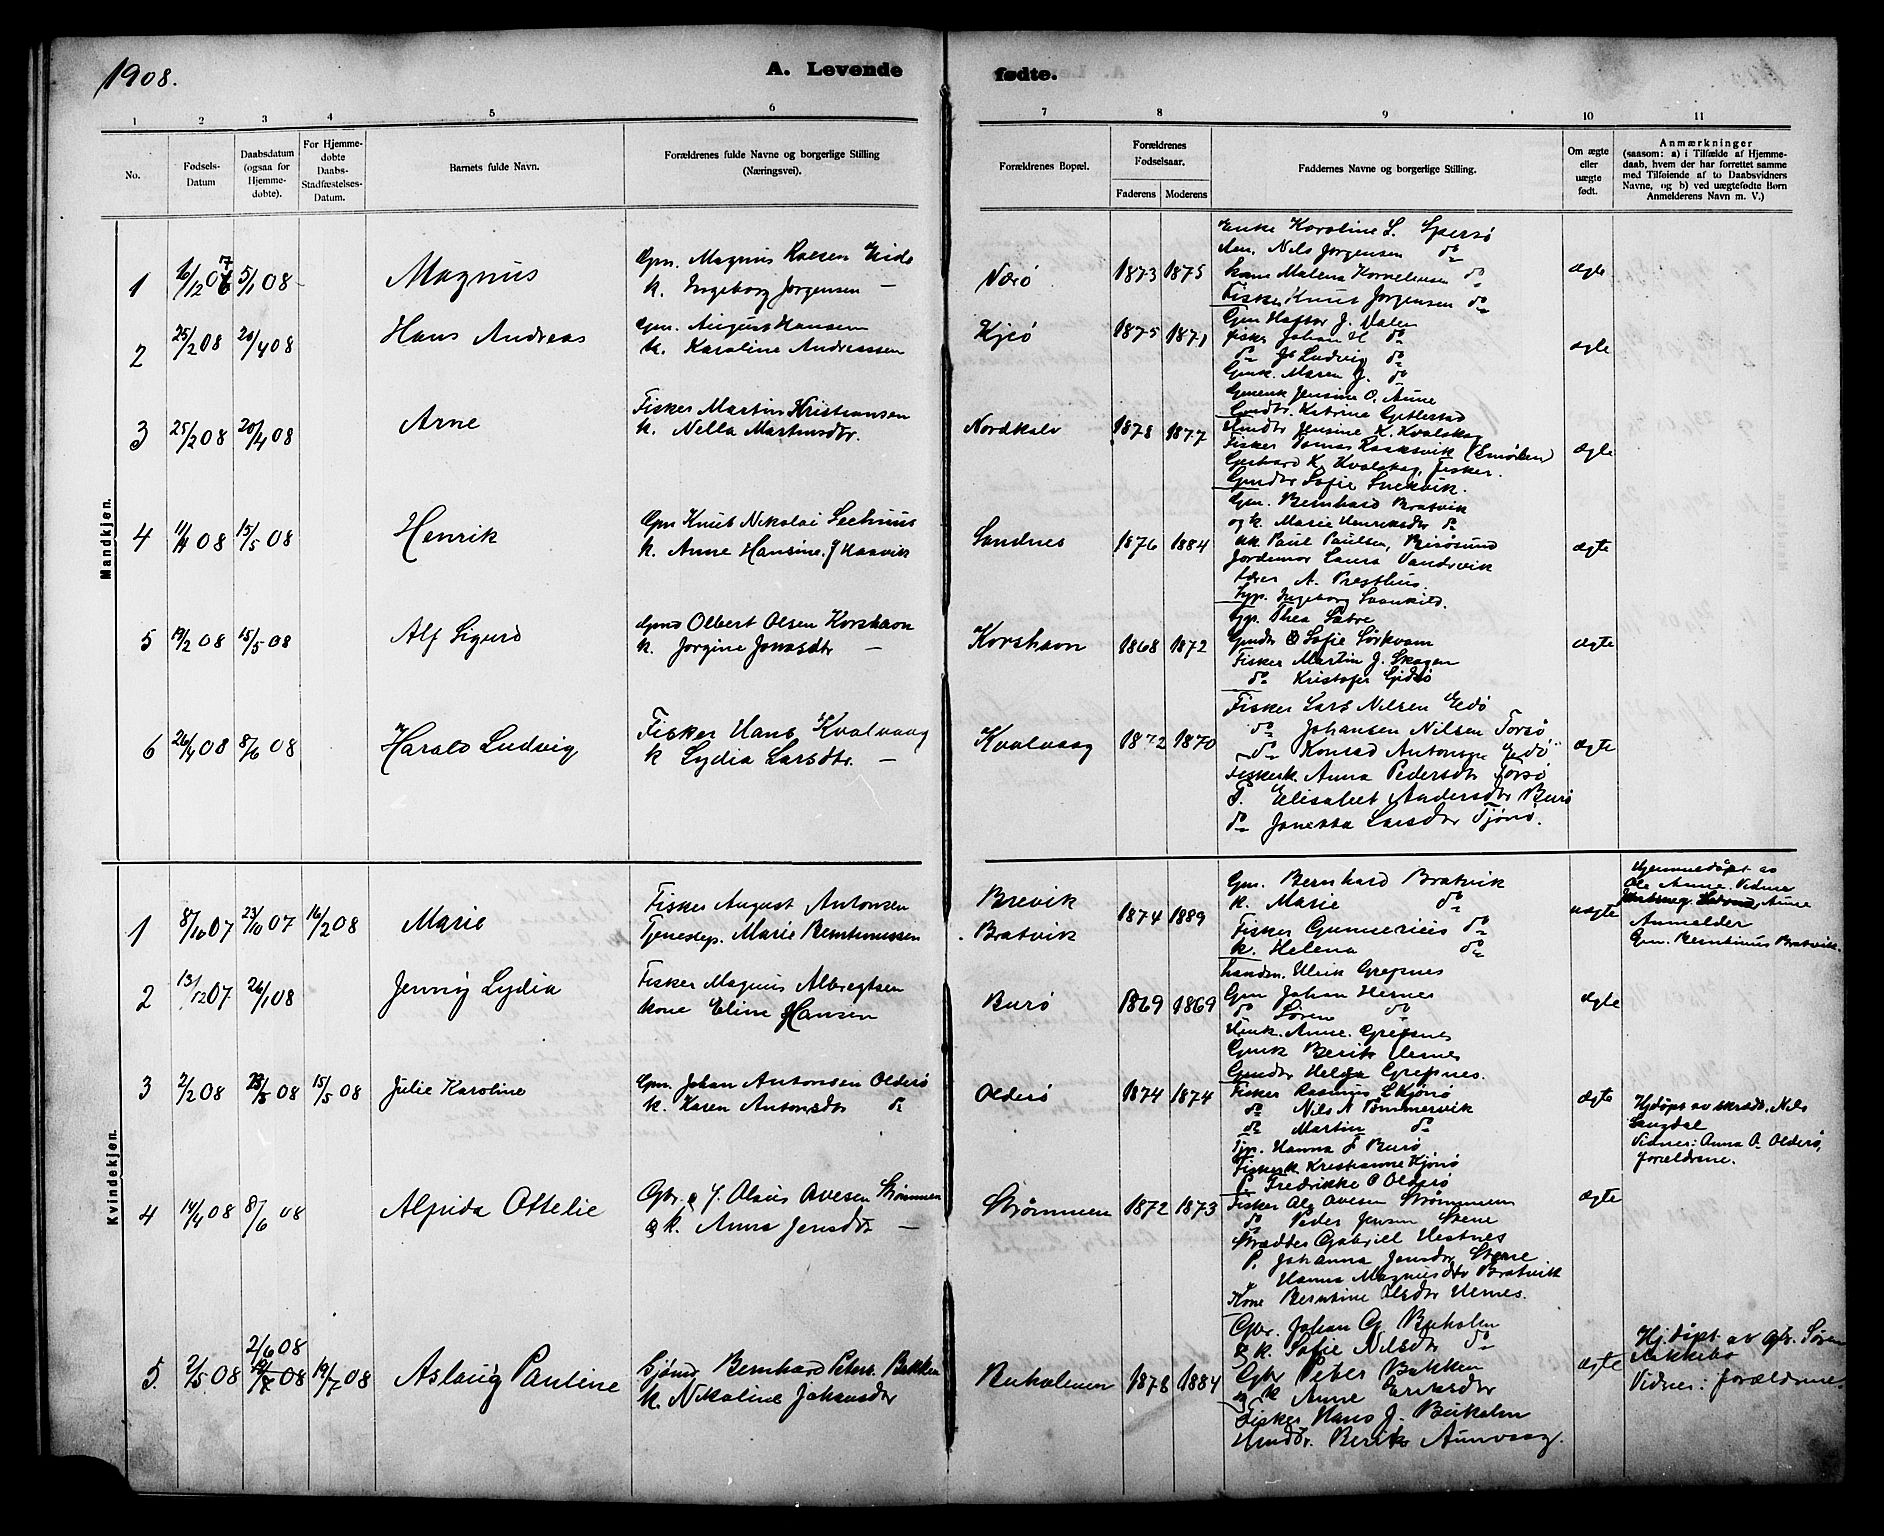 1908.
A. Levende fødte.
1 2 3 4 5 6 7 8 9 10 11
No.
Fødsels-Datum
Daabsdatum (ogsaa for Hjemmedøbte).
For Hjemmedøbte Daabs-Stadfæstelses-Datum.
Barnets fulde Navn.
Forældrenes fulde Navne og borgerlige Stilling (Næringsvei).
Forældrenes Bopæl.
Forældrenes Fødselsaar.
Faderens Moderens
Faddernes Navne og borgerlige Stilling.
Om ægte eller uægte født.
Anmærkninger
(saasom: a) i Tilfælde af Hjemmedaab, hvem der har forrettet samme med Tilføiende af to Daabsvidners Navne, og b) ved uægtefødte Børn Anmelderens Navn m. V.)
Mandkjøn.
1 6/12 07 5/1 08 Magnus
Gm. Magnus Roesen Eide
k. Ingeborg Jørgensen —
Nærø 1873 1875
Enke Karoline L. Spersø
Nils Jørgensen do
Malena Kornelius do
Fisker Knut Jørgensen do
ægte
2 25/2 08 20/4 08 Hans Andreas
Gm. August Hansen
k. Karoline Andreassen
Kjeø 1875 1871
Gm Haftor J. Valen
fisker Johan H do
do Ludvig do
Gmk. Maren J. do
ægte
3 25/2 08 20/4 08 Arne
Fisker Martin Kristiansen
k. Nella Martinsdtr.
Nordkalv 1878 1877
Gmenk Jensine O. Aune
Gmdtr. Katrina Gjetlestad
Jensine K. Kvalskag
Fisker Tomas Raaksvik (Smølen)
Gerhard K. Kvalskag, fisker.
Gmdtr Sofie Snekvik.
ægte
4 11/4 08 15/5 08 Henrik
Gm Knut Nikolai Sethnus
k. Anne Hansine J Haavik
Sandnes 1876 1884
Gm. Bernhard Bratvik
og k. Marie Henriksdtr do
Paul Paulsen, Brisøsund
Jordemor Laura Vandvik
lærer A. Presthus.
Typ. Ingeborg Svankild.
ægte
5 19/2 08 15/5 08 Alf Sigurd
Gmd Olbert Olsen Korshavn
k. Jorgine Jonasdtr —
Korshavn 1868 1872
Typ. Thea Sætre
Gmdtr Sofie Sørkvam
Fisker Martin J. Skagen
do Kristofer Gjidsø
ægte
6 26/4 08 8/6 08 Harald Ludvig
Fisker Hans Kvalvaag
k Lydia Larsdtr. —
Kvalvaag 1872 1870
Fisker Lars Nilsen Edø
do Johansen Nilsen Torsø
do Konrad Antonsen Edø
Fiskerk. Anna Pedersdtr Torsø
P. Elisabet Andersdtr Burø
do Janetta Larsdtr Tjønø.
ægte
Kvindekjøn.
1 8/10 07 23/10 07 16/2 08 Marie
Fisker August Antonsen
Tjenestep. Marie Berntinussen
Brevik
Bratvik
1874 1889
Gm. Bernhard Bratvik
k. Marie do
Fisker Gunnerius do
k. Helena do
uægte
Hjemmedøpt av
Ole Aune. Vidner
Aune
Anmelder
Gm. Berntinus Bratvik.
2 13/12 07 26/1 08 Jenny Lydia
Fisker Magnus Albregtsen
kone Eline Hansen
Burø 1869 1869
handm. Ulrik Grepnes
Gm Johan Hernes
do Søren do
Anne. Grepnes
Gmk Berit Hernes
Gmdtr Helga Grepnes.
ægte
3 2/2 08 23/3 08 15/5 08 Julie Karoline
Gm. Johan Antonsen Olderø
k. Karen Antonsdtr do
Olderø 1874 1874
Fisker Rasmus Skjørø
do Nils N Tømmervik
do Martin do
Typ. Hanna F Burø
Fiskerk Kristianne Kjørø
P. Fredrikke O Olderø
ægte
Hjdøpt av skrædr. Nils
Langdal
Vidner: Anna O. Olderø,
forældrene.
4 14/4 08 8/6 08 Alpida Ottelie
Gbr. Olaus Ovesen Strømmen
k. Anna Jensdtr —
Strømmen 1872 1873
Fisker Ole Ovesen Strømmen
do Peder Jensen Stene
Skrædder Gabriel Hestnes
P. Johanna Jensdtr Stene
" Hanna Magnusdtr Bratvik
Kone Berntine Olsdtr Hernes.
ægte
5. 2/5 08 2/6 08 19/7 08 19/7 08 Aslaug Pauline
Sjømd Bernhard Peters. Bakken
k. Nikoline Johansdtr
Buholmen 1878 1884
Gbr. Johan G Buholm
& k. Sofie Nilsdtr do
Gbr Peter Bakken
og k Anne Eriksdtr
Fisker Hans J. Buholm
Berit Aunvaag.
ægte
Hj.døpt av gbr. Søren
Rakkebø
Vidner: forældrene.